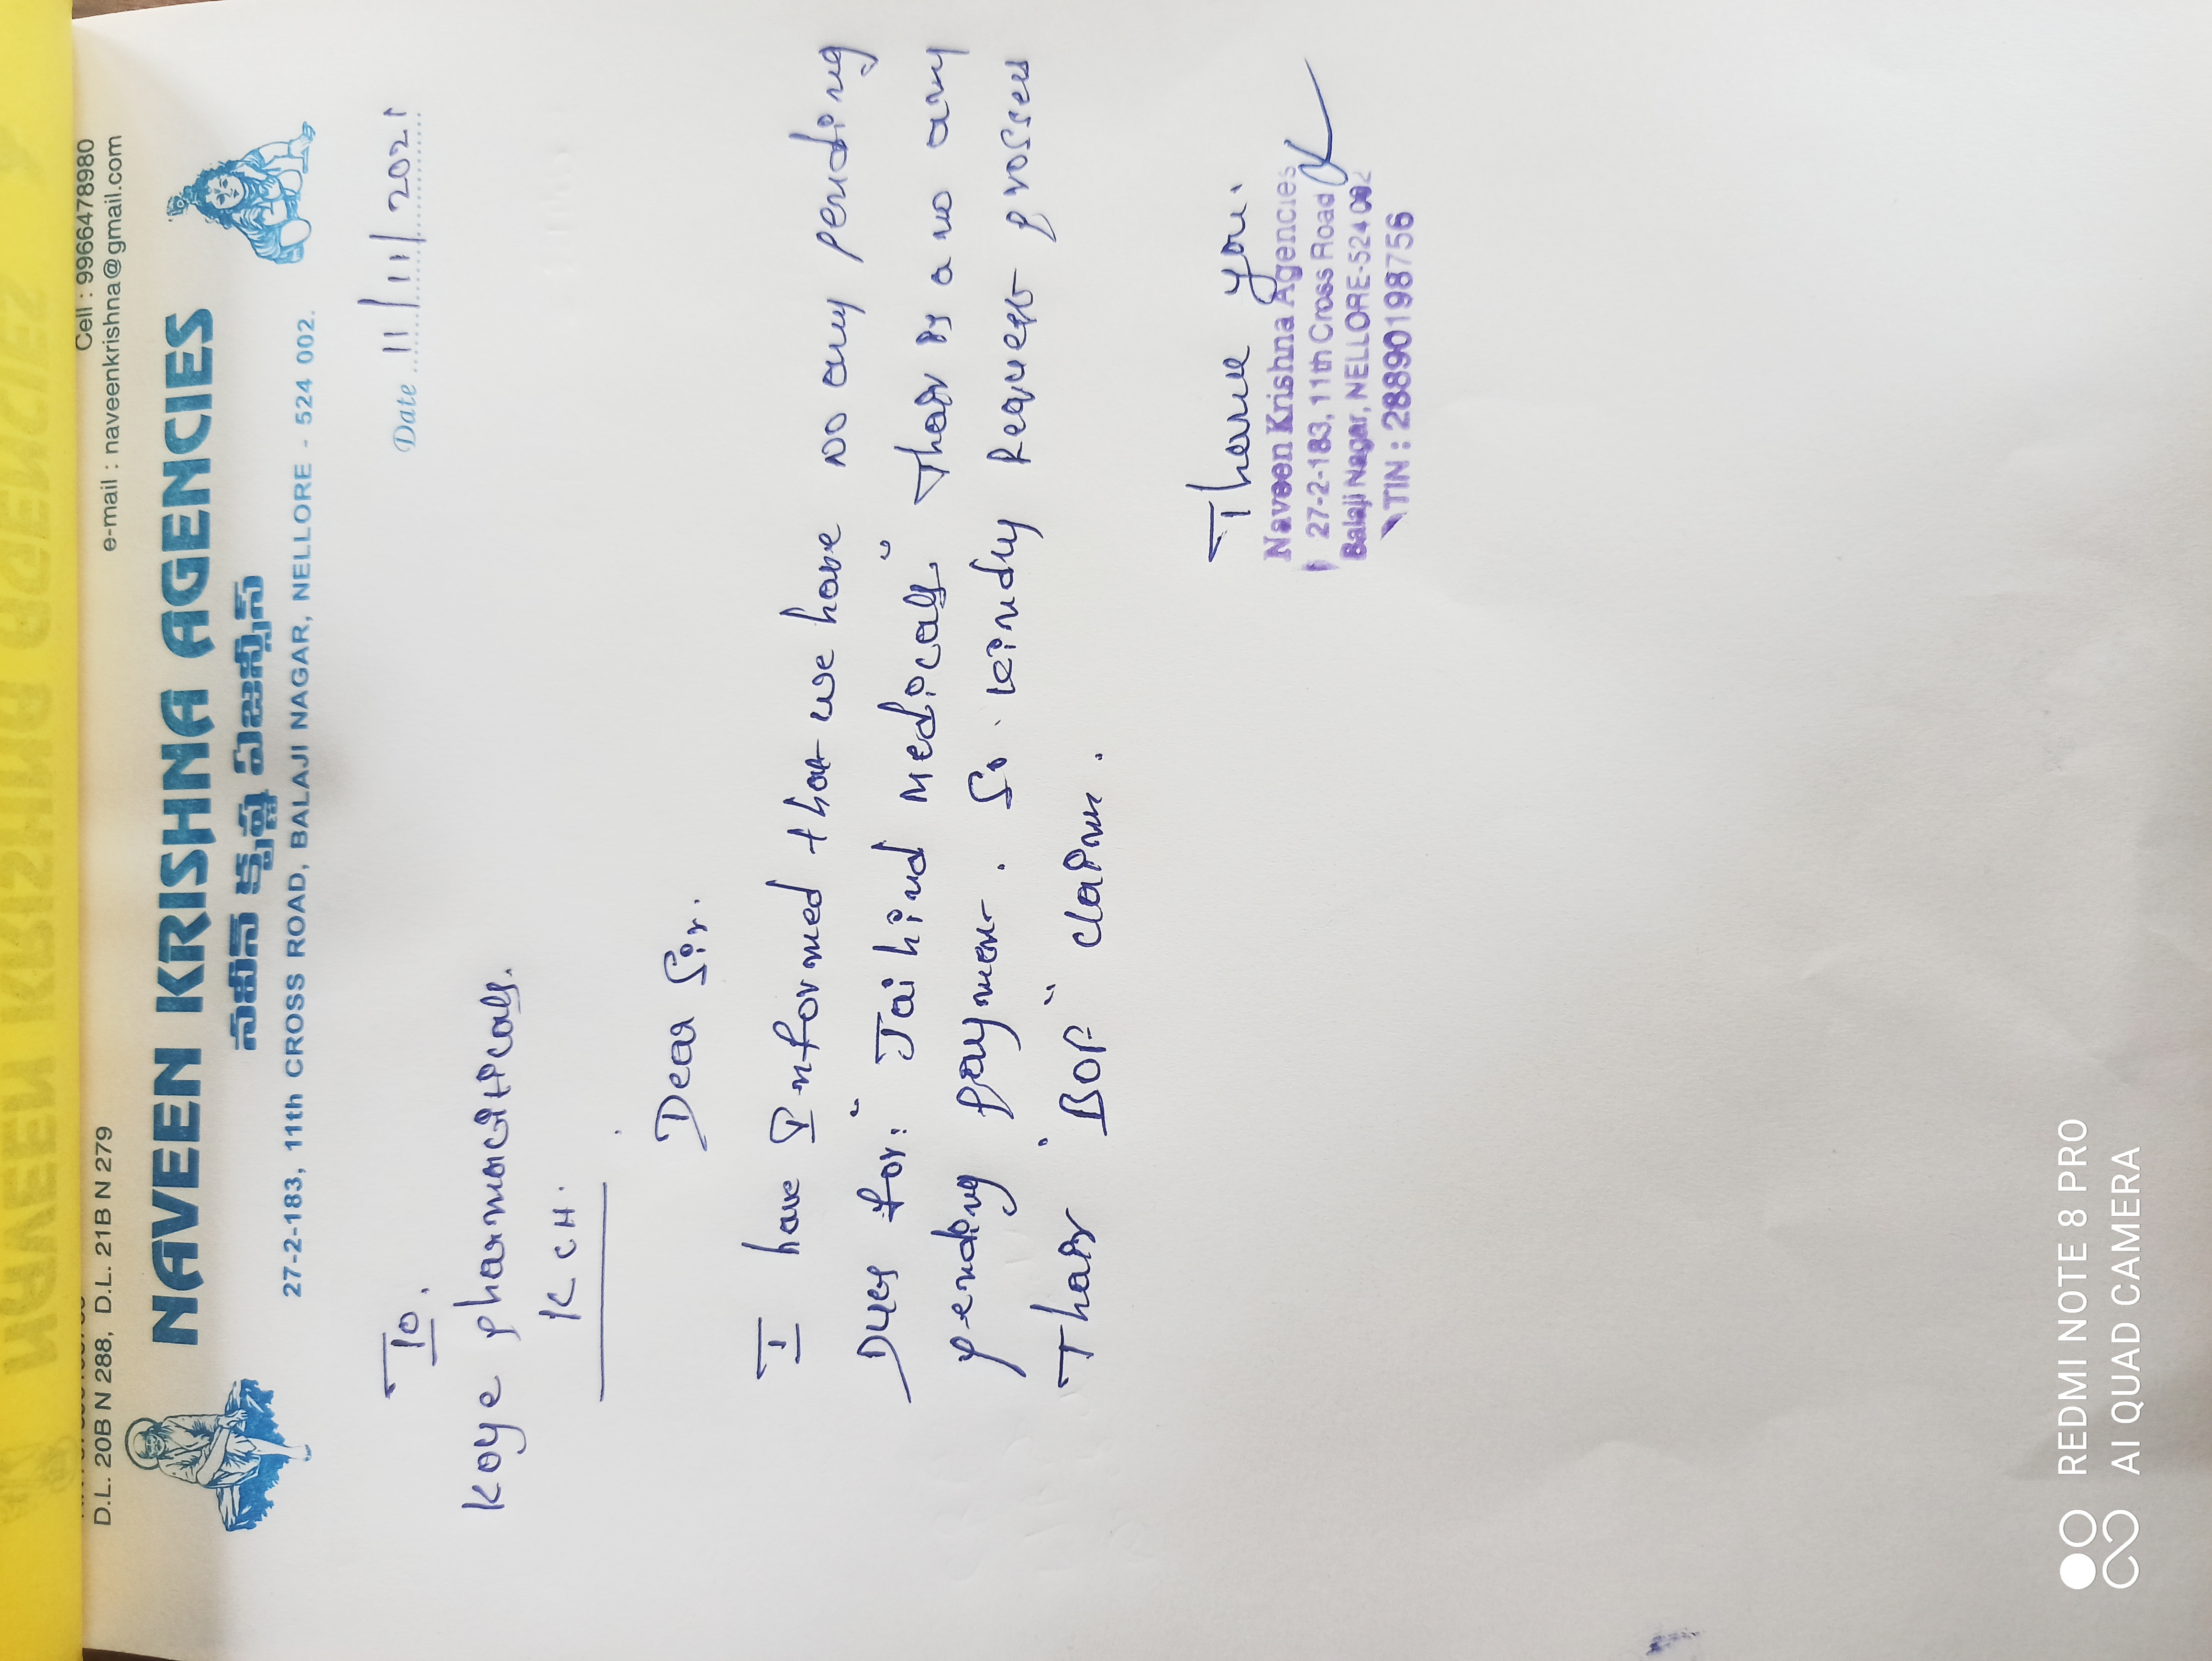 Cell : 9966478980
D.L. 20B N 288, D.L. 21B N 279
e-mail : naveenkrishna@gmail.com
NAVEEN KRISHNA AGENCIES
నవీన్ క్రిష్ణ ఏజన్సీస్
27-2-183, 11th CROSS ROAD, BALAJI NAGAR, NELLORE - 524 002.
Date 11/11/2021
To.
Koye pharmaceticals.
KCH.
Dear Sir.
I have Informed that we have no any pending
Dues for: "Jaihind medicals" Thair is a no any
pending payment. So. kindly Request prosses
Thair "BOF" claim.
Thank you.
Naveen Krishna Agencies
27-2-183, 11th Cross Road
Balaji Nagar, NELLORE-524 002
TIN : 28890198756
REDMI NOTE 8 PRO
AI QUAD CAMERA